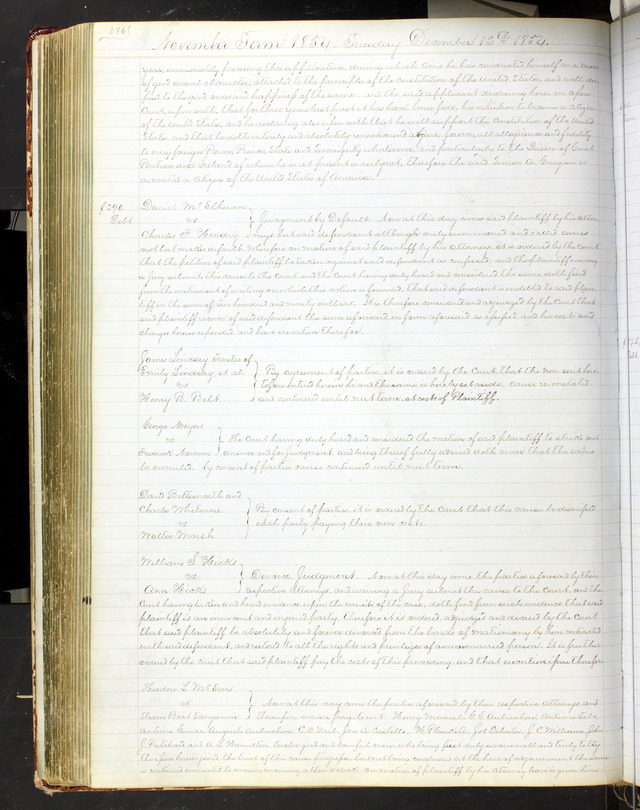 November Term 1854. Tuesday December 12th 1854.
years immediately preceding the application, during which time he has conducted himself as a man
of good moral character, attached to the principles of the constitution of the United States, and well dis-
posed to the good order and happiness of the same and the said applicant declaring here in open
Court, upon oath, that for three years last past it has been bona fide, his intention to become a citizen
of the United States, and he declaring also upon oath that he will support the Constitution of the United
States, and that he doth entirely and absolutely renounce and abjure forever, all allegiance and fidelity
to every foreign Power, Prince, State and Sovereignty whatsoever, and particularly to the Queen of Great
Britain and Ireland of whom he is at present a subject, therefore the said
admitted a citizen of the United States of America.
$290
Debt
Daniel McElheran
vs.
Judgment by Default. Now at this day comes said plaintiff by his attor-
Charles F. Hendry
neys, but said defendant although duly summoned and called comes
not but makes default. Wherefore on motion of said plaintiff by his attorney, it is ordered by the Court
that the petition of said plaintiff be taken against said defendant as confessed, and the plaintiff waiving
a Jury submits this cause to the Court, and the Court having duly heard and considered the same doth find
from the instrument of writing on which this action is founded, that said defendant is indebted to said plain-
tiff in the sum of two hundred and ninety dollars. It is therefore considered and adjudged by the Court that
said plaintiff recover of said defendant the same aforesaid in form aforesaid as assessed, and his costs and
charges herein expended and have execution therefor.
James Lindsay Trustee of
Emily Lindsay et al.
vs.
Henry B. Belt
By agreement of parties it is ordered by the Court, that the non suit here-
tofore entered herein be and the same is hereby set aside, cause re instated
and continued until next term, at costs of Plaintiff.
George Meyers
vs
Frederick
The Court having duly heard and considered the motion of said plaintiff to strike out
answer and for judgment, and being thereof fully advised doth order that the same
be overruled. by consent of parties cause continued until next term.
David Bettsworth and
Charles Whitmore
vs
Walter Marsh
By consent of parties, it is ordered by the Court that this cause be dismissed
each party paying their own costs.
William S. Hicks
vs
Ann Hicks
Divorce. Judgment. Now at this day come the parties aforesaid by their
respective attorneys, and waiving a Jury submit this cause to the Court, and the
Court having taken and heard evidence upon the merits of the case, doth find from such evidence that said
plaintiff is an innocent and injured party. therefore it is ordered adjudged and decreed by the Court
that said plaintiff be absolutely and forever divorced from the bonds of matrimony by him contracted
with said defendant, and restored to all the rights and privileges of an unmarried person. It is further
ordered by the Court that said plaintiff pay the costs of this proceeding, and that execution issue therefor.
Theodore L. McEvers
vs
Steam Boat
Now at this day come the parties aforesaid by their respective attorneys, and
thereupon comes a jury to wit: Henry
J. Pritchard and A. S. Hamilton, twelve good and lawful men, who being first duly sworn well and truly to try
the issue herein joined, the trial of this cause progresses, but not being concluded at the hour of adjournment the same
is continued until to morrow morning at ten o'clock. On motion of plaintiff by his attorney leave is given him